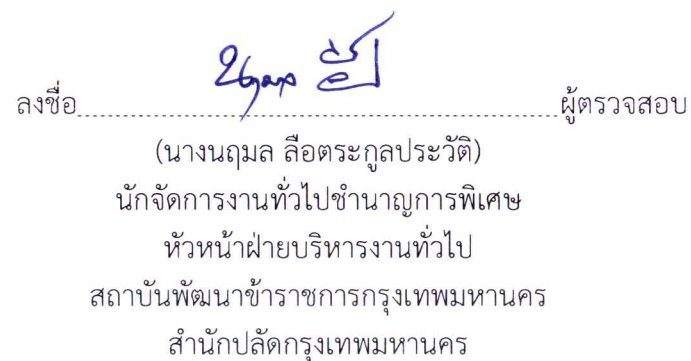 ลงชื่อ........................................................ผู้ตรวจสอบ
(นางนฤมล ลือตระกูลประวัติ)
นักจัดการงานทั่วไปชำนาญการพิเศษ
หัวหน้าฝ่ายบริหารงานทั่วไป
สถาบันพัฒนาข้าราชการกรุงเทพมหานคร
สำนักปลัดกรุงเทพมหานคร